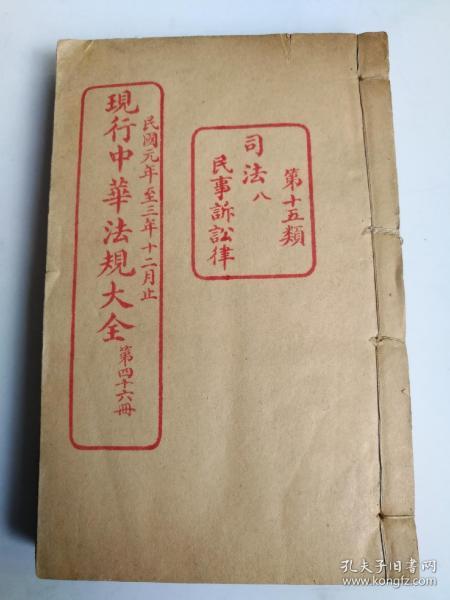 第十五類
司法八
民事訴訟律
民國元年至三年十二月止
現行中華法規大全
第四十六冊
孔夫子旧书网
www.kongfz.com